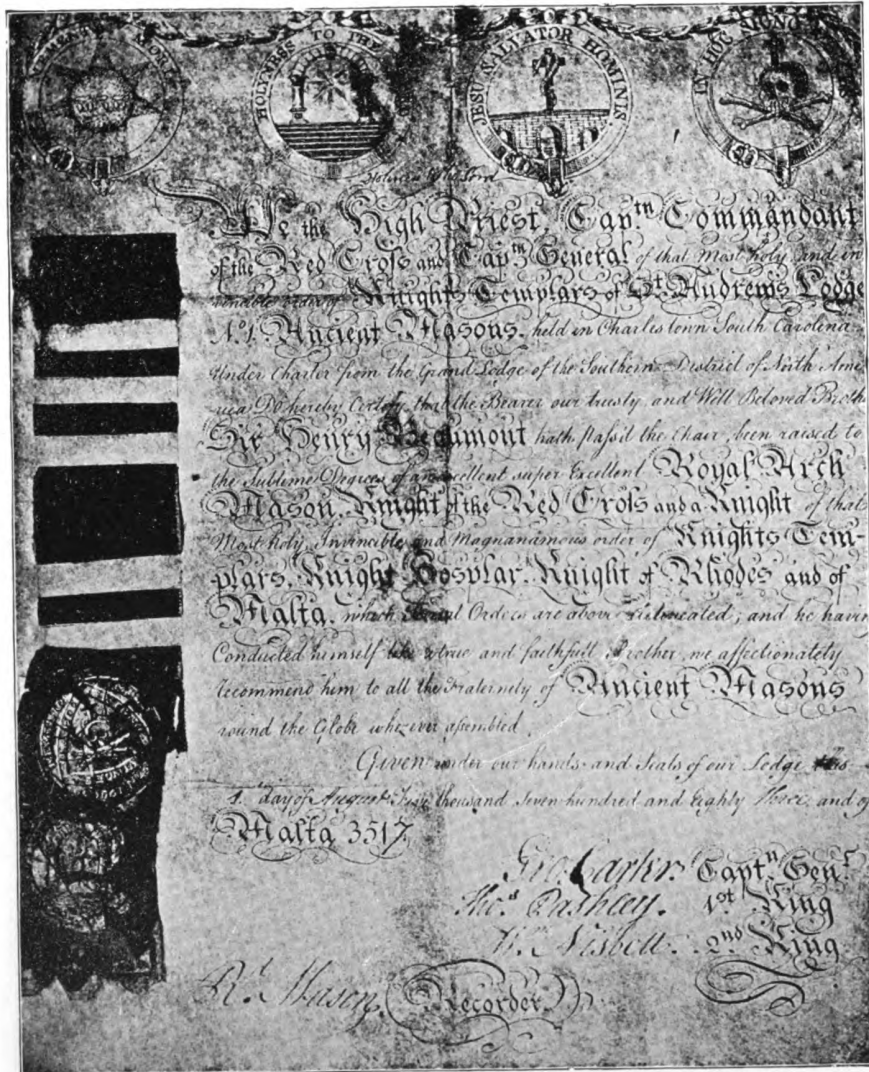 MEMENTO MORI
HOLYNESS TO THE
JESU SALVATOR HOMINIS.
IN HOC SIGNO
We the High Priest, Captn Commandant
of the Red Cross and Captn General of that Most holy and in
vincible order of Knights Templars of St. Andrew's Lodge
No. 1. Ancient Masons. held in Charlestown South Carolina
Under Charter from the Grand Lodge of the Southern District of North Ame
rica Do hereby Certify that the Bearer our trusty and Well Beloved Brothe
Sir Henry Beaumont hath pass'd the Chair, been raised to
the Sublime Degrees of an excellent super Excellent Royal Arch
Mason, Knight of the Red Cross and a Knight of that
Most holy, Invincible and Magnanamous order of Knights Tem-
plars, Knight Hosplar, Knight of Rhodes and of
Malta, which Orders are above delineated; and he having
Conducted himself like a true and faithfull Brother, we affectionately
recommend him to all the Fraternity of Ancient Masons
round the Globe wherever assembled.
Given under our hands and Seals of our Lodge this
1. day of August Five thousand Seven hundred and Eighty three, and of
Malta 3517.
Geo. Carter. Captn. Genl.
Thos. Pashley. 1st. King
Wm. Nisbett. 2nd King
Rd. Mason, Recorder.